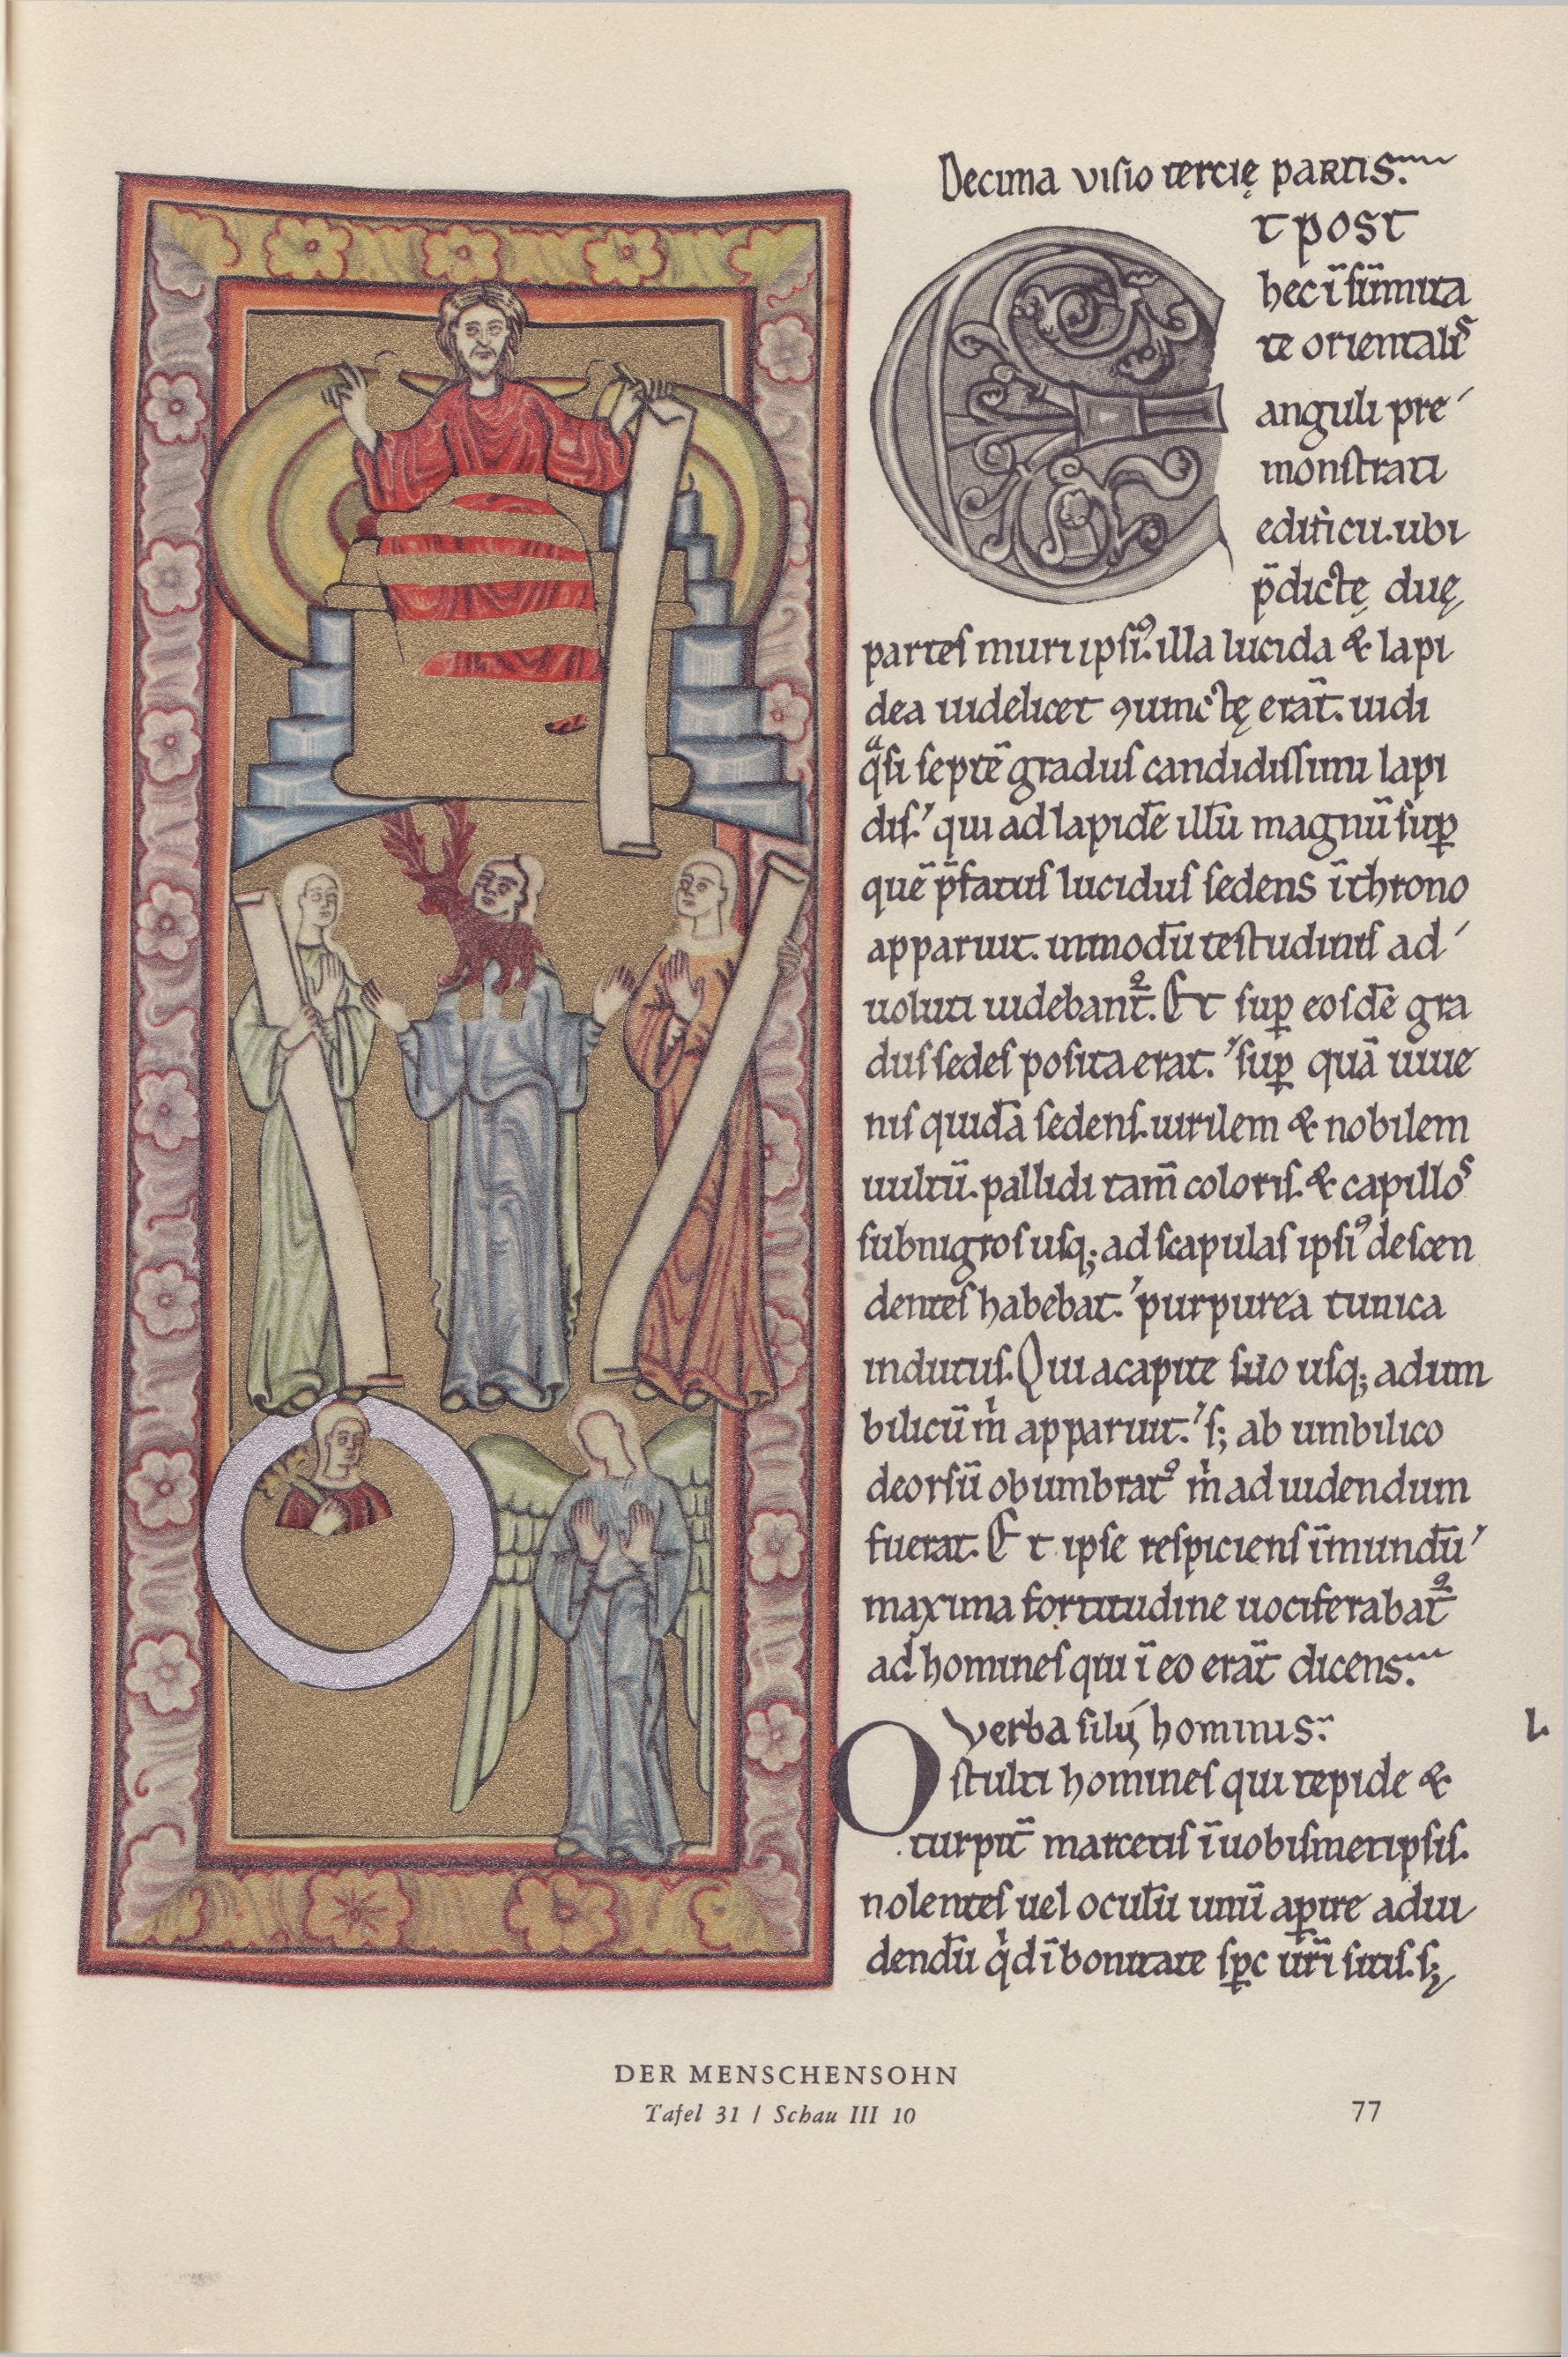 Decima visio tercię partis.
Et post
hec ī sūmita
te orientalis
anguli pre
monstrati
edificii. ubi
p̄dictę duę
partes muri ipsiꝰ. illa lucida & lapi
dea uidelicet ꝯiunctę erāt. uidi
qᵃsi septē gradus candidissimi lapi
dis. qui ad lapidē illū magnū suꝑ
quē p̄fatus lucidus sedens ī throno
apparuit. inmodū testudinis ad
uoluti uidebant᷒. Et suꝑ eosdē gra
dus sedes posita erat. suꝑ quā iuue
nis quidā sedens. uirilem & nobilem
uultū. pallidi tam̄ coloris. & capillos
subnigros usq; ad scapulas ipsiꝰ descen
dentes habebat. purpurea tunica
indutus. Qui a capite suo usq; ad um
bilicū m̍ apparuit. s; ab umbilico
deorsū obumbratꝰ m̍ ad uidendum
fuerat. Et ipse respiciens ī mundū
maxima fortitudine uociferabat᷒
ad homines qui ī eo erāt dicens.
Verba filii hominis.
O stulti homines qui tepide &
turpit̄ marcetis ī uobismetipsis.
nolentes uel oculū unū apire ad ui
dendū qͥd ī bonitate spc ur̄i sitis. s;
l.
DER MENSCHENSOHN
Tafel 31 / Schau III 10
77